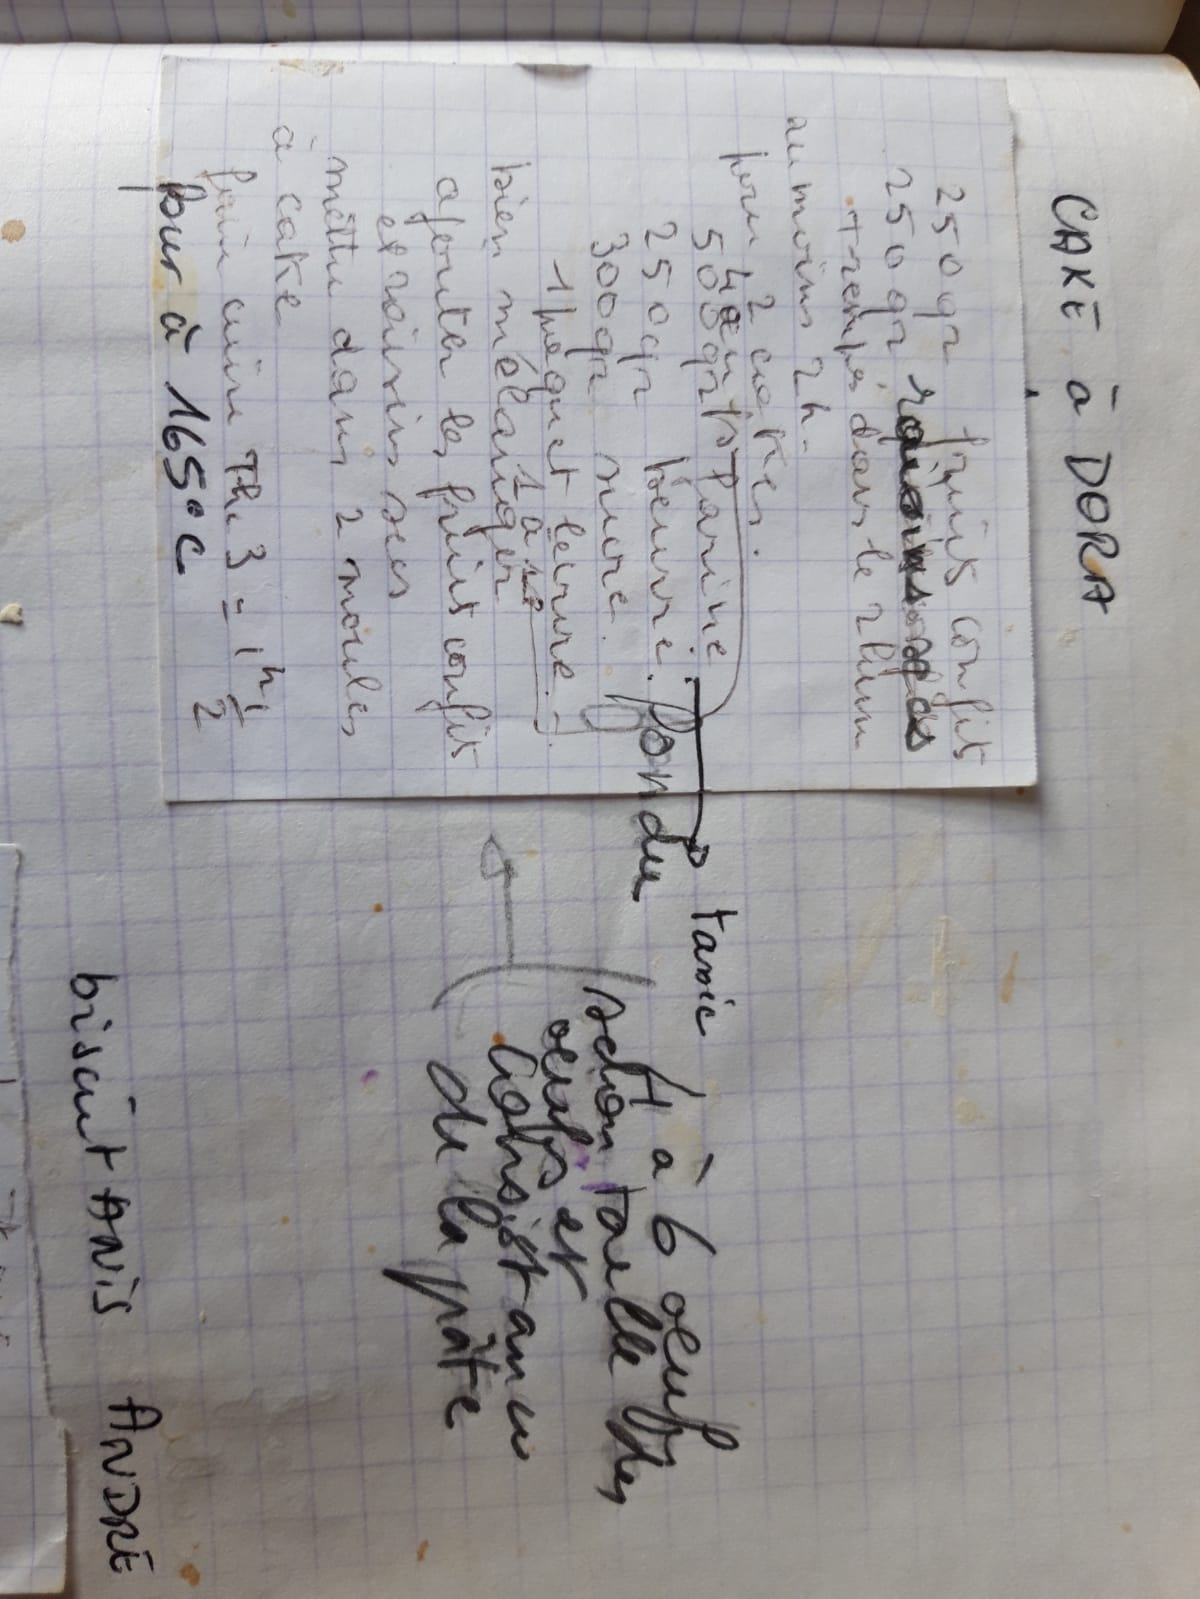 CAKE à DORA
250gr fruits confits
250gr raisins secs
trempés dans le rhum
au moins 2h.
pour 2 cakes.
4 œufs
500gr farine tamie
250gr beurre. fondu
300gr sucre.
1 paquet levure.
1 à 1
bien mélanger
ajouter les fruits confits
et raisins secs
mettre dans 2 moules
à cake
faire cuire Th. 3 - 1h 1/2
four à 165°C
4 à 6 oeufs
selon taille des
oeufs et
consistance
de la pâte
biscuit ANIS ANDRÉ